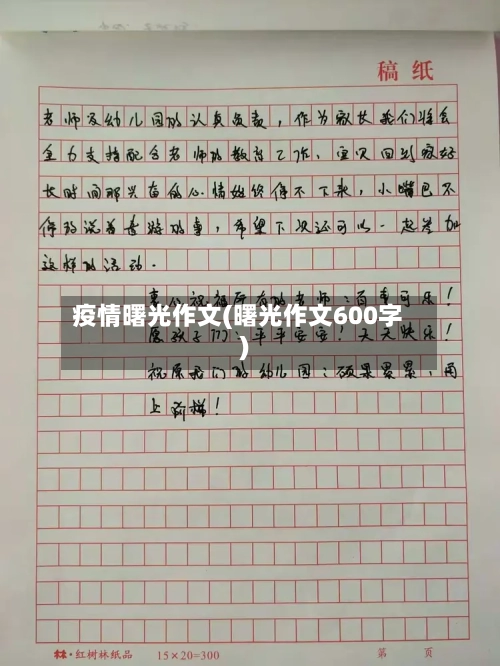 稿纸
老师及幼儿园的认真负责，作为家长我们将会
全力支持配合老师的教育工作。宝贝回到家好
长时间那兴奋的心情始终停不下来，小嘴巴不
停的说着春游的事，希望下次还可以一起参加
这样的活动。
衷心祝福所有的老师：百事可乐！
疫情曙光作文(曙光作文600字
)
愿孩子们：平平安安！天天快乐！
祝愿我们的幼儿园：硕果累累，更
上一阶梯！
红树林纸品 15×20=300 第 页